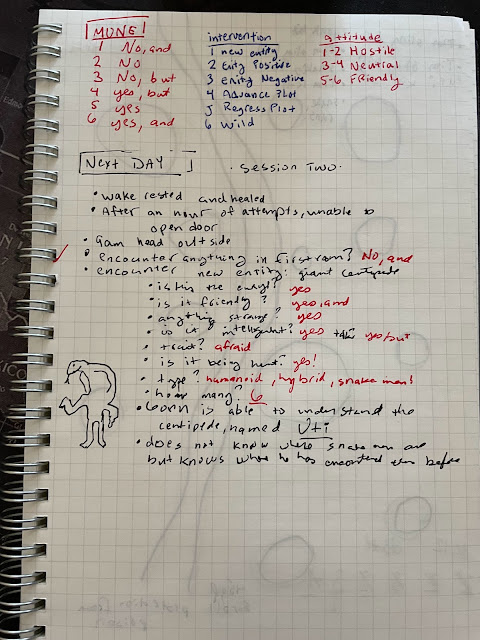 MUNE
1 No, and
2 No
3 No, but
4 yes, but
5 yes
6 yes, and
intervention
1 new entity
2 Enity Positive
3 Enity Negative
4 Advance Plot
5 Regress Plot
6 Wild
attitude
1-2 Hostile
3-4 Neutral
5-6 Friendly
Next DAY
· Session Two ·
• wake rested and healed
• After an hour of attempts, unable to
open door
• 9am head outside
• encounter anything in first room? No, and
• encounter new entity: giant centipede
• is this the enity? yes
• is it friendly? yes, and
• anything strange? yes
• is it intelligent? yes talk? yes, but
• trait? afraid
• is it being hunt? yes!
• type? humanoid, hybrid, snake men!
• how many? 6
• is able to understand the
centipede, named Uti
• does not know where snake men are
but knows where he has encontered them before